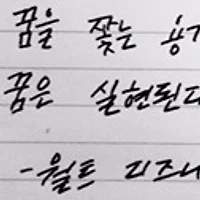 꿈을 쫓는 용기
꿈은 실현된다
-월트 디즈니